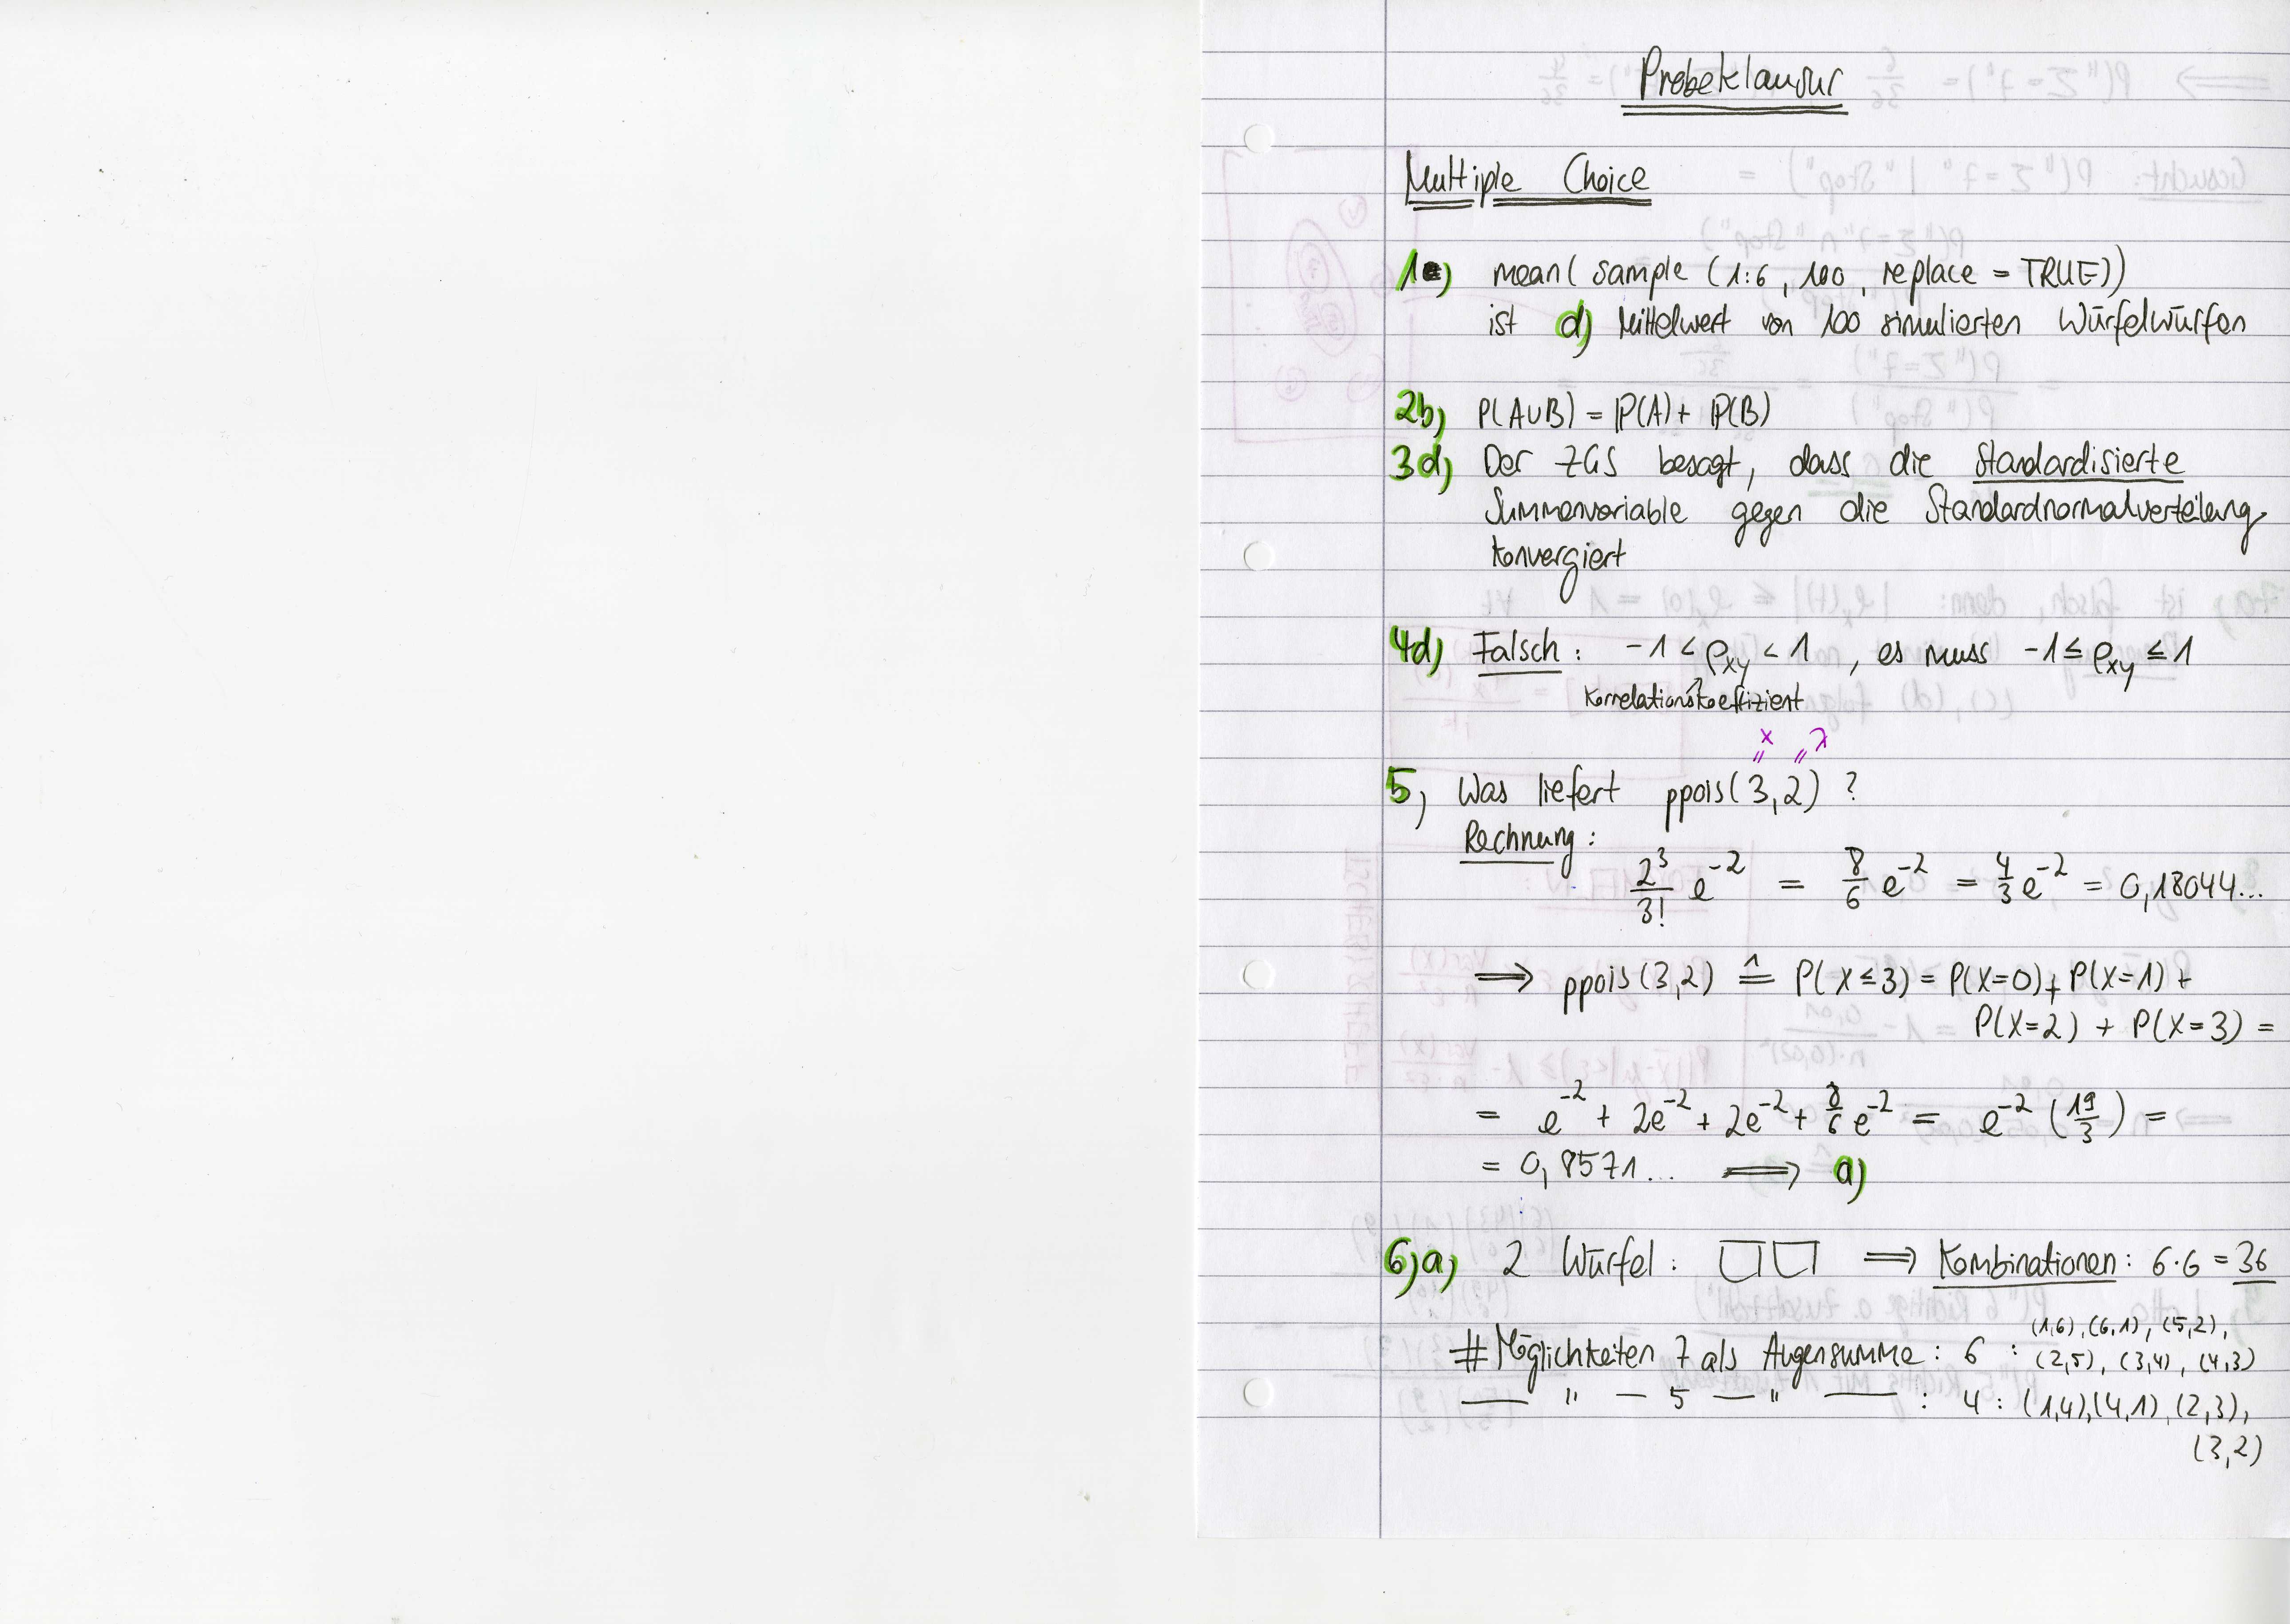 Probeklausur
Multiple Choice
1) mean( sample (1:6, 100, replace = TRUE))
ist d) Mittelwert von 100 simulierten Würfelwürfen
2b) P(A∪B) = P(A) + P(B)
3d) Der ZGS besagt, dass die Standardisierte
Summenvariable gegen die Standardnormalverteilung
konvergiert
4d) Falsch: -1 < ρxy < 1, es muss -1 ≤ ρxy ≤ 1
Korrelationskoeffizient
x λ
5) Was liefert ppois(3,2) ?
Rechnung:
2³/3! e⁻² = 8/6 e⁻² = 4/3 e⁻² = 0,18044...
⟹ ppois(3,2) ≙ P(X≤3) = P(X=0) + P(X=1) +
P(X=2) + P(X=3) =
= e⁻² + 2e⁻² + 2e⁻² + 8/6 e⁻² = e⁻² (19/3) =
= 0,8571... ⟹ a)
6)a) 2 Würfel: ⟹ Kombinationen: 6·6 = 36
(1,6), (6,1), (5,2),
# Möglichkeiten 7 als Augensumme: 6 : (2,5), (3,4), (4,3)
— " — 5 — " — : 4 : (1,4),(4,1), (2,3),
(3,2)